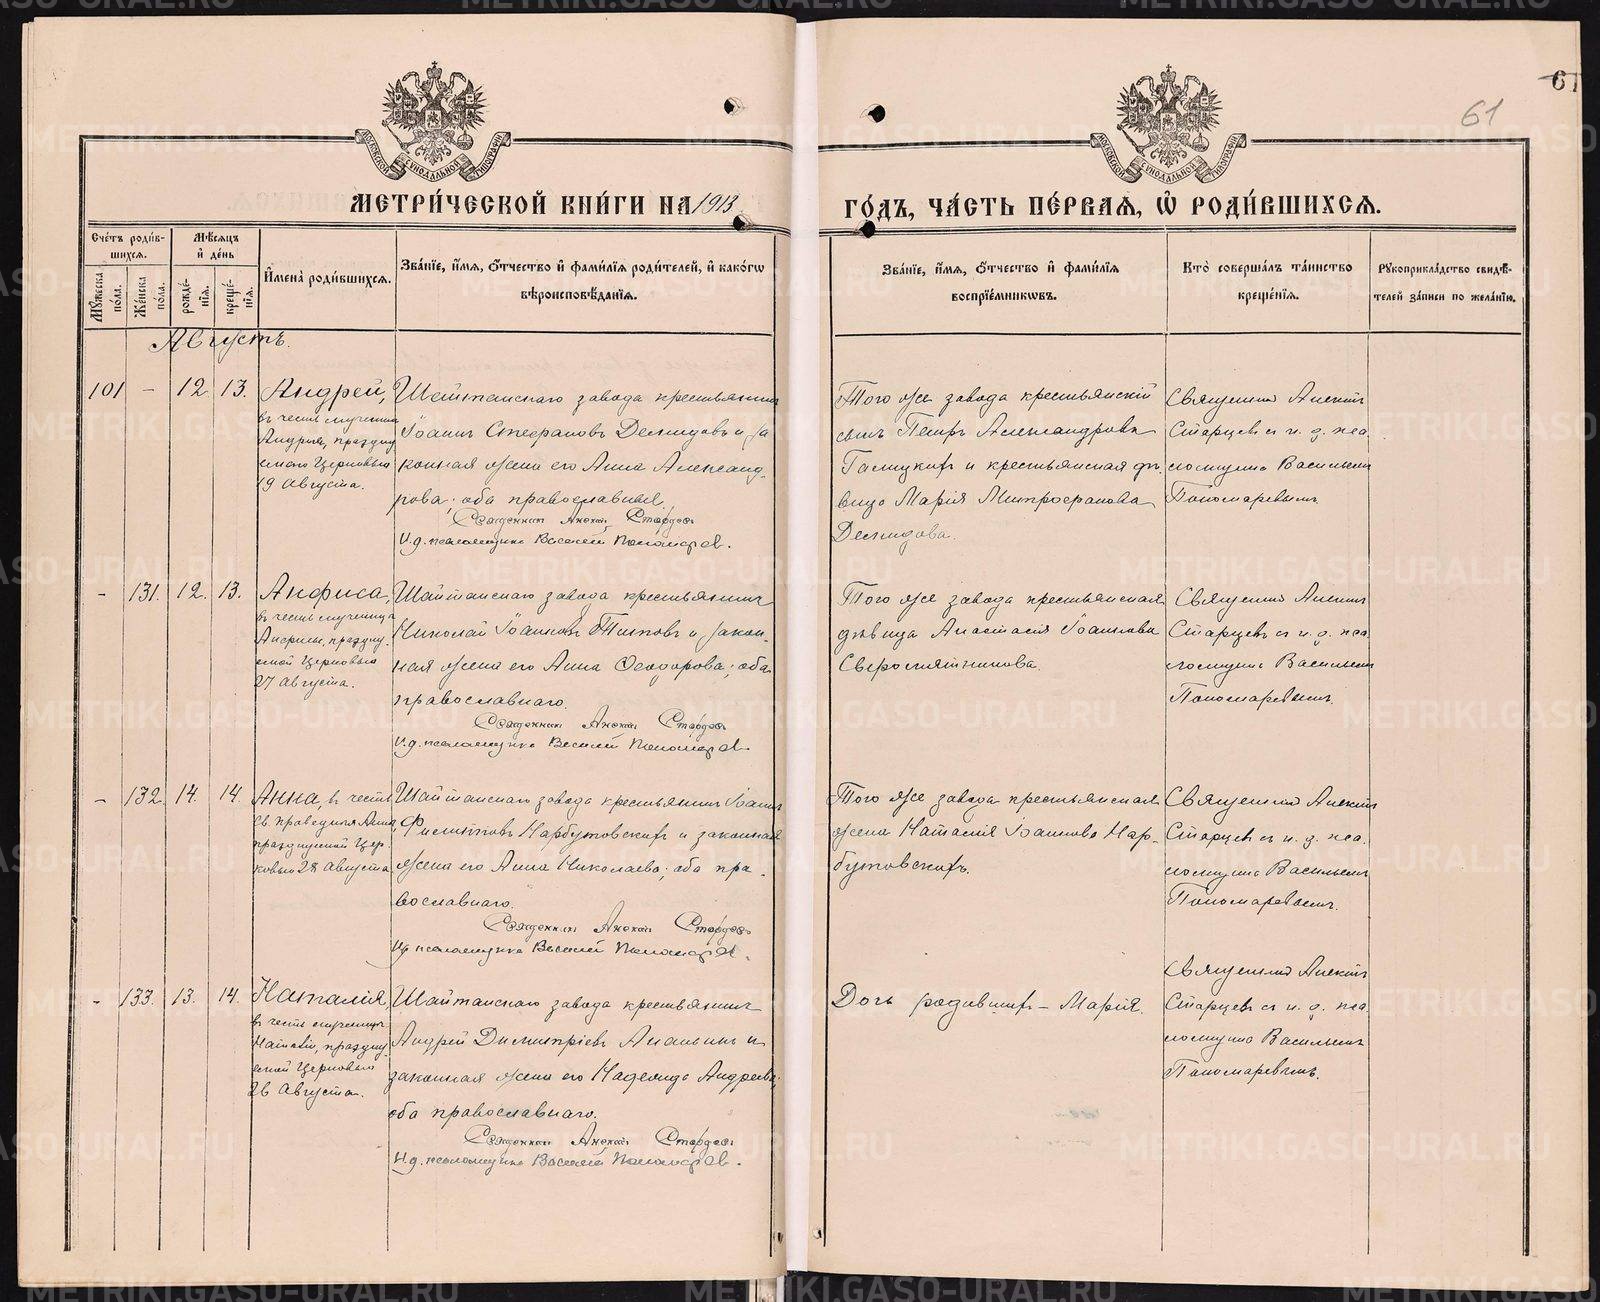 МЕТРИ́ЧЕСКОЙ КНИ́ГИ НА 1913
ГО́ДЪ, ЧА́СТЬ ПЕ́РВАЯ, Ѡ҆ РОДИ́ВШИХСЯ.
61
МОСКОВСКОЙ СѴНОДАЛЬНОЙ ТИПОГРАФІИ
МОСКОВСКОЙ СѴНОДАЛЬНОЙ ТИПОГРАФІИ
Сче́тъ роди́в-
шихся.
Мѣ́сяцъ
и҆ де́нь
Мꙋ́жеска по́ла.
Же́нска по́ла.
рожде́-нїя.
креще́-нїя.
И҆мена̀ роди́вшихся.
Зва́нїе, и҆́мя, ѻ҆́тчество и҆ фами́лїя роди́телей, и҆ како́гѡ
вѣроисповѣ́данїя.
Зва́нїе, и҆́мя, ѻ҆́тчество и҆ фами́лїя
воспрїе́мниковъ.
Кто̀ соверша́лъ та́инство
креще́нїя.
Рꙋкоприкла́дство свидѣ́-
телей за́писи по жела́нїю.
Августъ.
101 - 12. 13.
Андрей,
въ честь мученика
Андрея, праздну
емаго Церковью
19 Августа.
Шайтанскаго завода крестьянинъ
Іоаннъ Стефановъ Демидовъ и за
конная жена его Анна Александ-
рова; оба православныя
Священникъ Алексій Старцевъ
И.д. псаломщика Василій Пономаревъ.
Того же завода крестьянскій
сынъ Петръ Александровъ
Галицкихъ и крестьянская дѣ
вица Марія Митрофанова
Демидова.
Священникъ Алексій
Старцевъ съ и. д. пса
ломщика Василіемъ
Пономаревымъ
- 131. 12. 13.
Анфиса,
въ честь мученицы
Анфисы, праздну-
емой Церковью
27 Августа.
Шайтанскаго завода крестьянинъ
Николай Іоанновъ Титовъ и закон-
ная жена его Анна Ѳеодорова; оба
православнаго.
Священникъ Алексій Старцевъ
И.д. псаломщика Василій Пономаревъ
Того же завода крестьянская
дѣвица Анастасія Іоаннова
Сыромятникова.
Священникъ Алексій
Старцевъ съ и. д. пса
ломщика Василіемъ
Пономаревымъ.
- 132. 14. 14.
Анна, въ честь
св. праведныя Анны,
празднуемой Цер-
ковью 28 Августа
Шайтанскаго завода крестьянинъ Іоаннъ
Филипповъ Нарбутовскихъ и законная
жена его Анна Николаева; оба пра-
вославнаго.
Священникъ Алексій Старцевъ
И.д. псаломщика Василій Пономаревъ.
Того же завода крестьянская
жена Наталія Іоаннова Нар-
бутовскихъ.
Священникъ Алексій
Старцевъ съ и. д. пса-
ломщика Василіемъ
Пономаревымъ.
- 133. 13. 14.
Наталія,
въ честь мученицы
Наталіи, праздну-
емой Церковью
26 Августа.
Шайтанскаго завода крестьянинъ
Андрей Димитріевъ Ананьинъ и
законная жена его Надежда Андреева;
оба православнаго.
Священникъ Алексій Старцевъ
И.д. псаломщика Василій Пономаревъ.
Дочь родившихъ - Марія.
Священникъ Алексій
Старцевъ съ и. д. пса
ломщика Василіемъ
Пономаревымъ.
METRIKI.GASO-URAL.RU